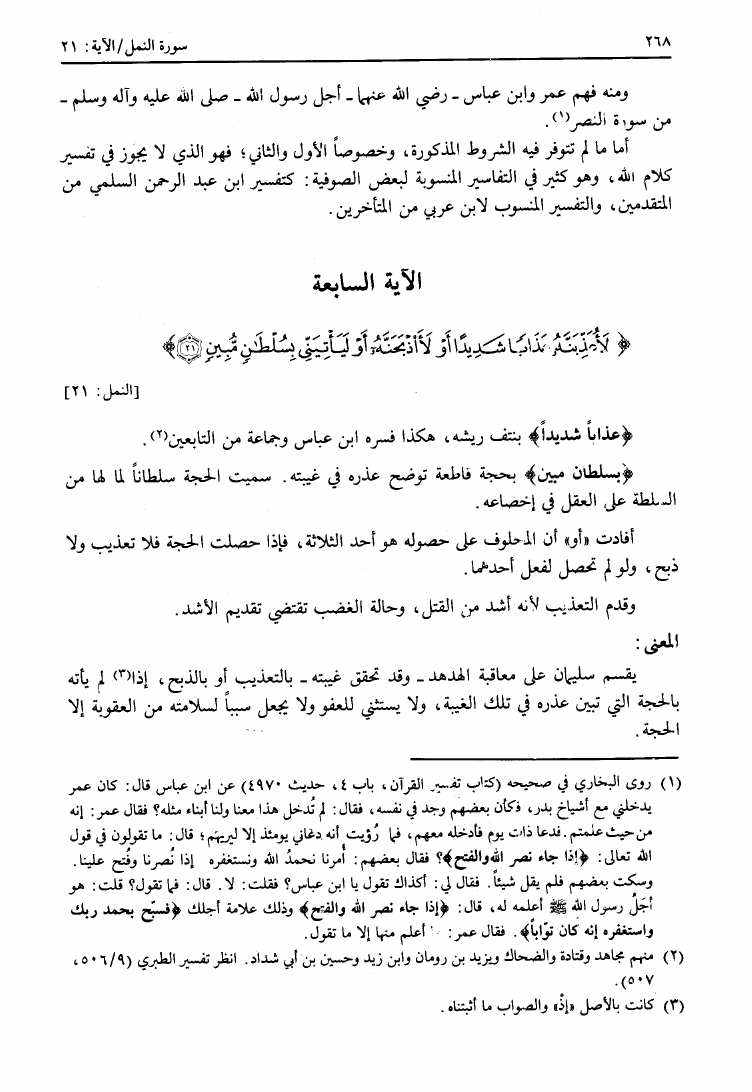 ٢٦٨
سورة النمل/الآية: ٢١
ومنه فهم عمر وابن عباس ـ رضي الله عنهما ـ أجل رسول الله ـ صلى الله عليه وآله وسلم ـ
من سورة النصر(١).
أما ما لم تتوفر فيه الشروط المذكورة، وخصوصاً الأول والثاني؛ فهو الذي لا يجوز في تفسير
كلام الله، وهو كثير في التفاسير المنسوبة لبعض الصوفية: كتفسير ابن عبد الرحمن السلمي من
المتقدمين، والتفسير المنسوب لابن عربي من المتأخرين.
الآية السابعة
﴿ لَأُعَذِّبَنَّهُۥ عَذَابًا شَدِيدًا أَوْ لَأَاْذْبَحَنَّهُۥٓ أَوْ لَيَأْتِيَنِّي بِسُلْطَٰنٍ مُّبِينٍ ٢١ ﴾
[النمل: ٢١]
﴿عذاباً شديداً﴾ بنتف ريشه، هكذا فسره ابن عباس وجماعة من التابعين(٢).
﴿بسلطان مبين﴾ بحجة قاطعة توضح عذره في غيبته. سميت الحجة سلطاناً لما لها من
السلطة على العقل في إخضاعه.
أفادت «أو» أن المحلوف على حصوله هو أحد الثلاثة، فإذا حصلت الحجة فلا تعذيب ولا
ذبح، ولو لم تحصل لفعل أحدهما.
وقدم التعذيب لأنه أشد من القتل، وحالة الغضب تقتضي تقديم الأشد.
المعنى:
يقسم سليمان على معاقبة الهدهد ـ وقد تحقق غيبته ـ بالتعذيب أو بالذبح، إذا(٣) لم يأته
بالحجة التي تبين عذره في تلك الغيبة، ولا يستثني للعفو ولا يجعل سبباً لسلامته من العقوبة إلا
الحجة.
(١) روى البخاري في صحيحه (كتاب تفسير القرآن، باب ٤، حديث ٤٩٧٠) عن ابن عباس قال: كان عمر
يدخلني مع أشياخ بدر، فكأن بعضهم وجد في نفسه، فقال: لم تُدخل هذا معنا ولنا أبناء مثله؟ فقال عمر: إنه
من حيث علمتم. فدعا ذات يوم فأدخله معهم، فما رُؤيت أنه دعاني يومئذ إلا ليريهم؛ قال: ما تقولون في قول
الله تعالى: ﴿إذا جاء نصر الله والفتح﴾؟ فقال بعضهم: أُمرنا نحمدُ الله ونستغفره إذا نُصرنا وفُتح علينا.
وسكت بعضهم فلم يقل شيئاً. فقال لي: أكذاك تقول يا ابن عباس؟ فقلت: لا. قال: فما تقول؟ قلت: هو
أجَلُ رسول الله ﷺ أعلمه له، قال: ﴿إذا جاء نصر الله والفتح﴾ وذلك علامة أجلك ﴿فسبّح بحمد ربك
واستغفره إنه كان توّاباً﴾. فقال عمر: أعلم منها إلا ما تقول.
(٢) منهم مجاهد وقتادة والضحاك ويزيد بن رومان وابن زيد وحسين بن أبي شداد. انظر تفسير الطبري (٥٠٦/٩،
٥٠٧).
(٣) كانت بالأصل «إذْ» والصواب ما أثبتناه.